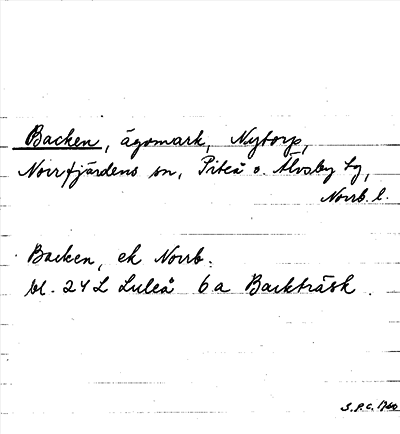 Backen, ägomark, Nytorp,
Norrfjärdens sn, Piteå o. Älvsby tg,
Norrb. l.
Backen, ek Norrb.
bl. 24 L Luleå 6 a Backträsk.
S.P.C. 1960